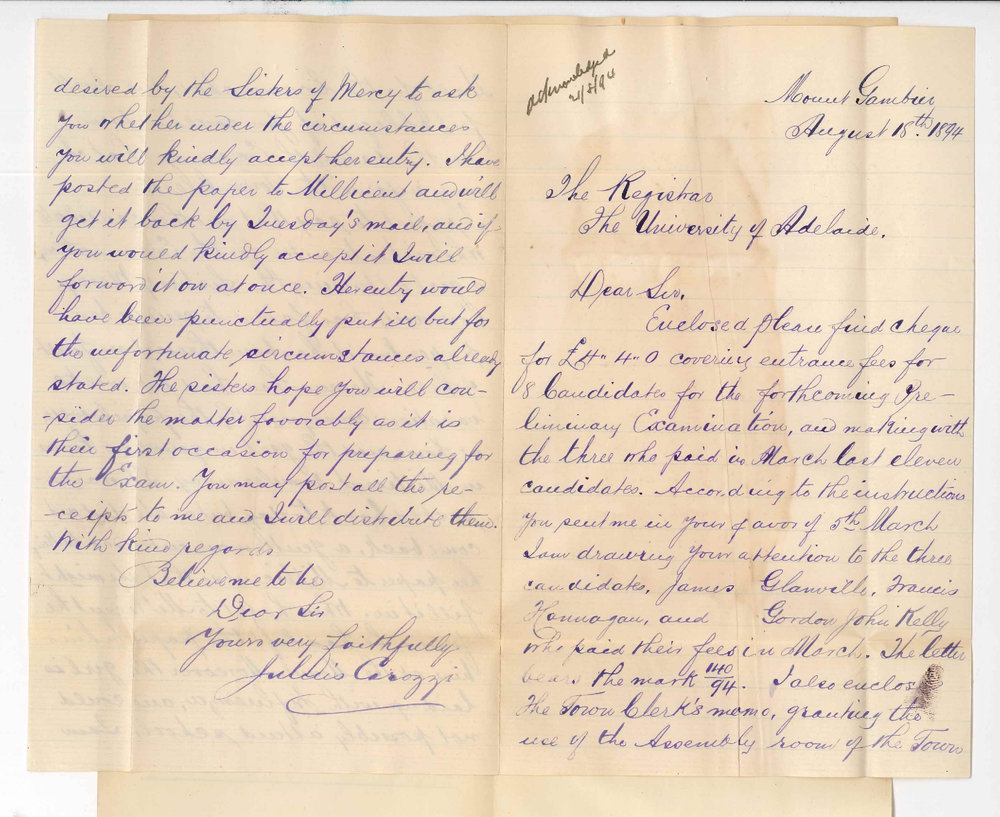 acknowledged
21/8/94
Mount Gambier
August 18th 1894
The Registrar
The University of Adelaide.
Dear Sir,
Enclosed please find cheque
for £4" 4" 0 covering entrance fees for
8 Candidates for the forthcoming Pre-
liminary Examination, and making with
the three who paid in March last eleven
candidates. According to the instructions
you sent me in your favor of 5th March
I am drawing your attention to the three
candidates, James Glanville, Francis
Hannagan, and Gordon John Kelly
who paid their fees in March. The letter
bears the mark 140/94. I also enclos
the Town Clerk's memo, granting the
use of the Assembly room of the Town
desired by the Sisters of Mercy to ask
you whether under the circumstances
you will kindly accept her entry. I have
posted the paper to Millicent and will
get it back by Tuesday's mail, and if
you would kindly accept it I will
forward it on at once. Her entry would
have been punctually put in but for
the unfortunate circumstances already
stated. The sisters hope you will con-
-sider the matter favorably as it is
their first occasion for preparing for
the Exam. You may post all the re-
-ceipts to me and I will distribute them.
With kind regards
Believe me to be
Dear Sir
Yours very faithfully
Julius Carozzi